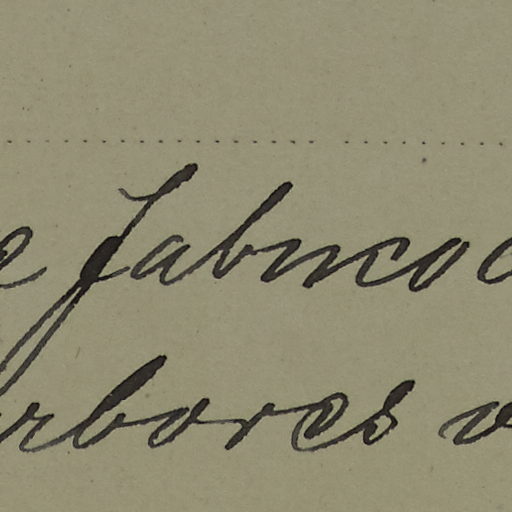 e fabrico d
rbores o